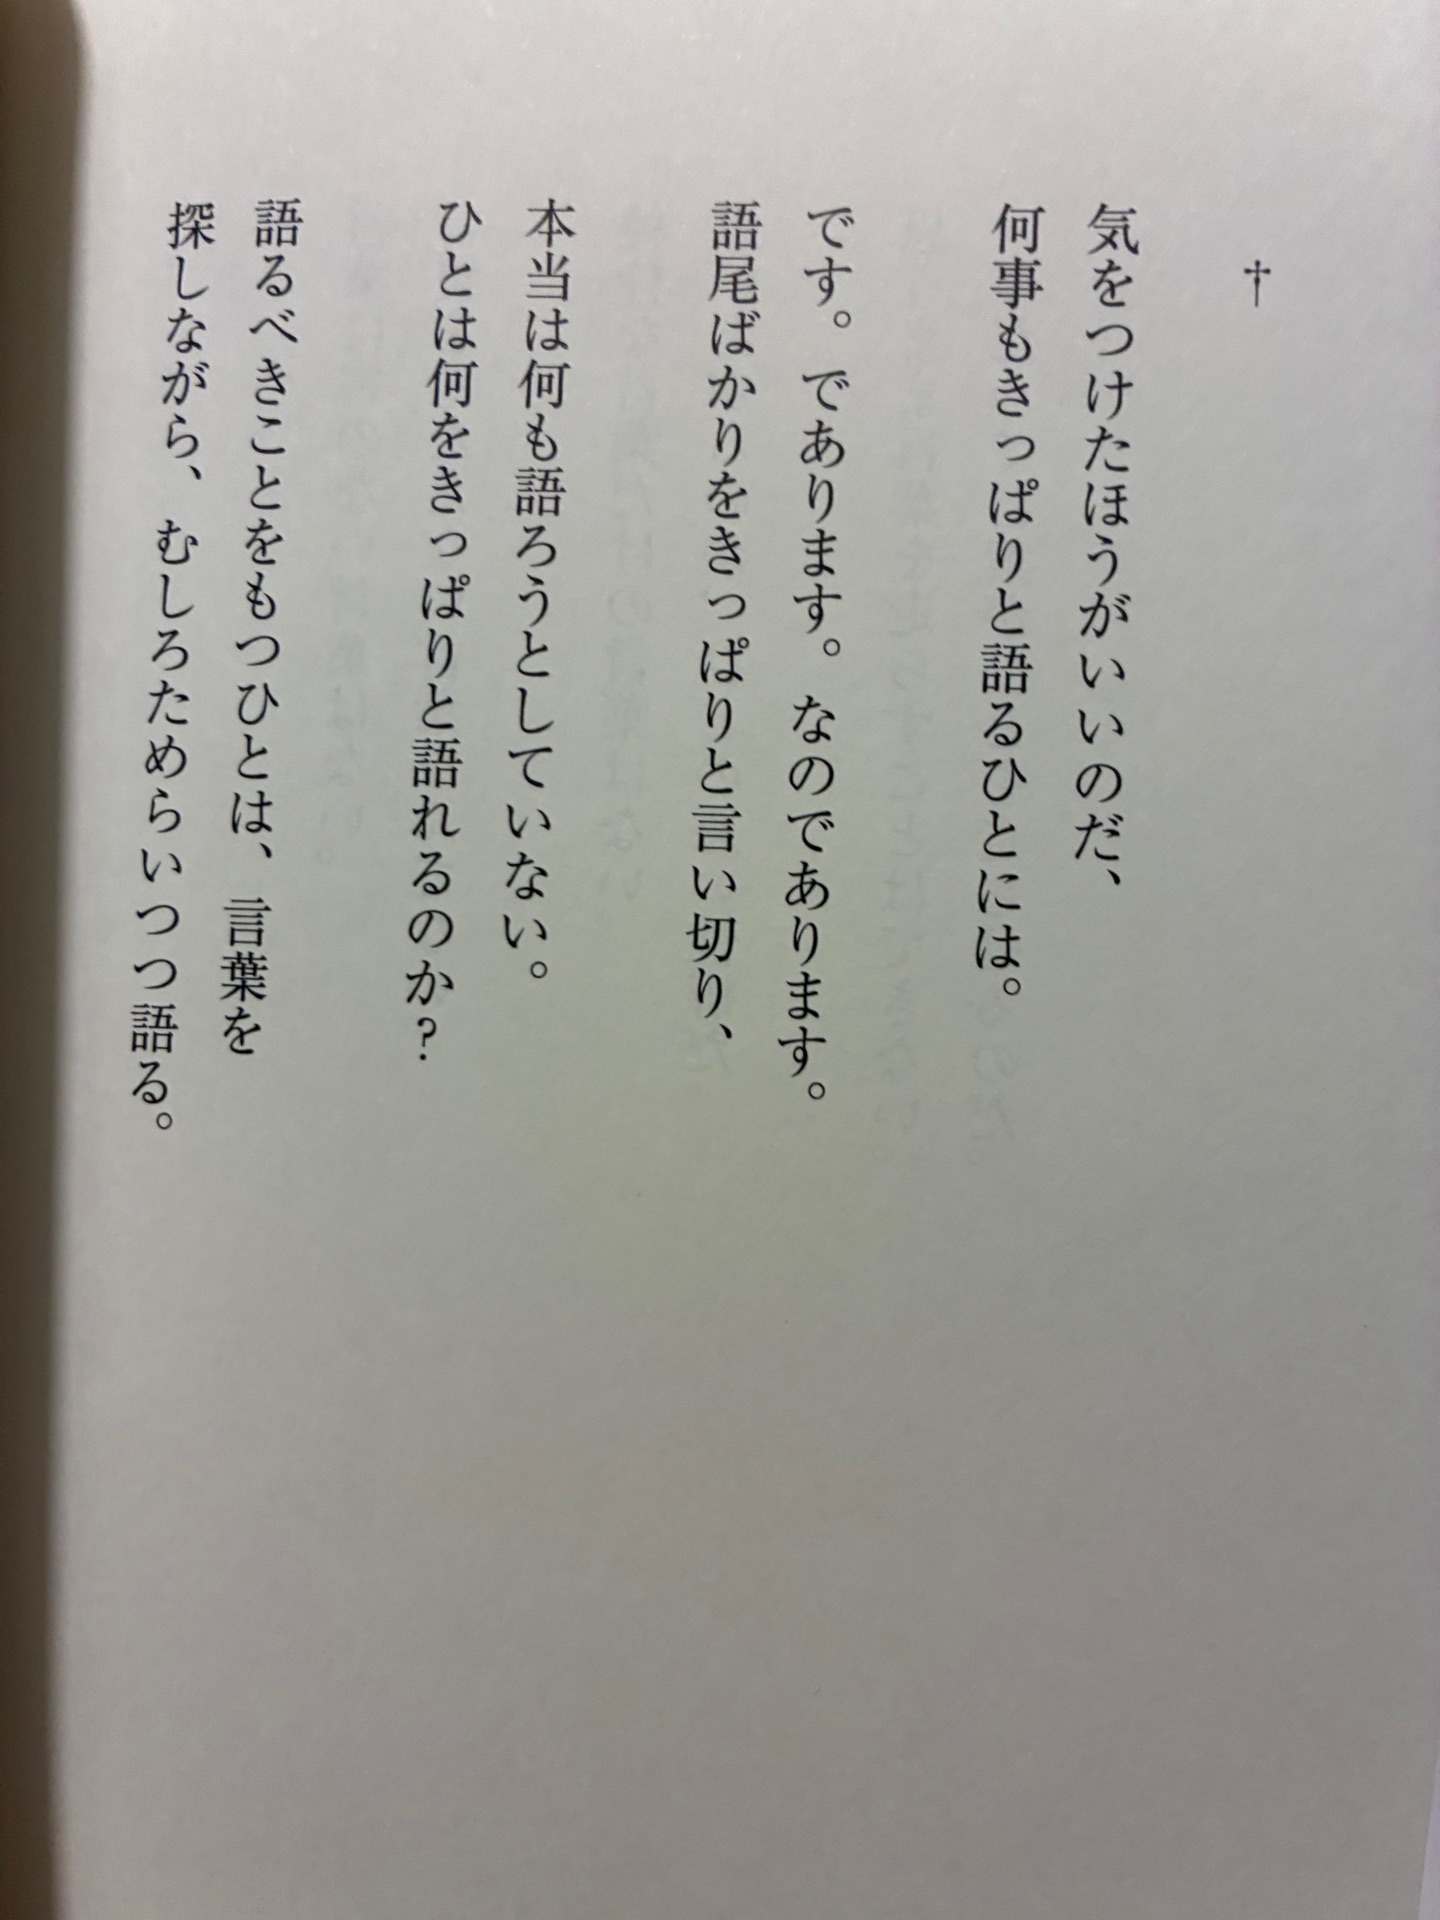 †
気をつけたほうがいいのだ、
何事もきっぱりと語るひとには。
です。であります。なのであります。
語尾ばかりをきっぱりと言い切り、
本当は何も語ろうとしていない。
ひとは何をきっぱりと語れるのか?
語るべきことをもつひとは、言葉を
探しながら、むしろためらいつつ語る。